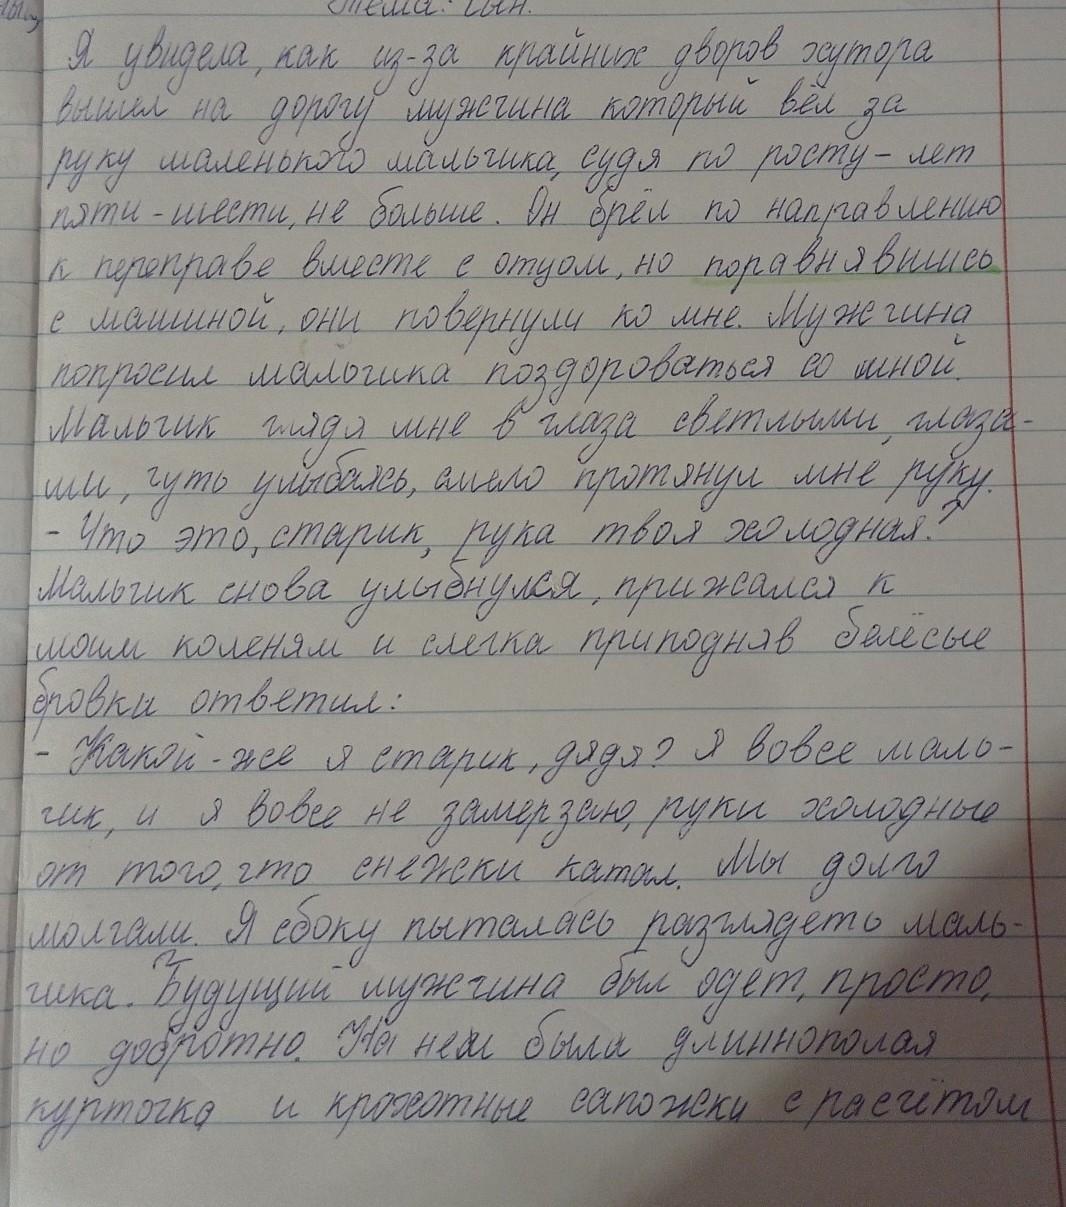 Тема: Сын.
Я увидела, как из-за крайних дворов хутора
вышел на дорогу мужчина который вёл за
руку маленького мальчика, судя по росту - лет
пяти - шести, не больше. Он брёл по направлению
к переправе вместе с отцом, но поравнявшись
с машиной, они повернули ко мне. Мужчина
попросил мальчика поздороваться со мной.
Мальчик глядя мне в глаза светлыми, глаза-
ми, чуть улыбаясь, смело протянул мне руку.
- Что это, старик, рука твоя холодная?
Мальчик снова улыбнулся, прижался к
моим коленям и слегка приподняв белёсые
бровки ответил:
- Какой-же я старик, дядя? Я вовсе маль-
чик, и я вовсе не замерзаю, руки холодные
от того, что снежки катал. Мы долго
молчали. Я сбоку пыталась разглядеть маль-
чика. Будущий мужчина был одет, просто,
но добротно. На нем была длиннополая
курточка и крохотные сапожки с расчётом